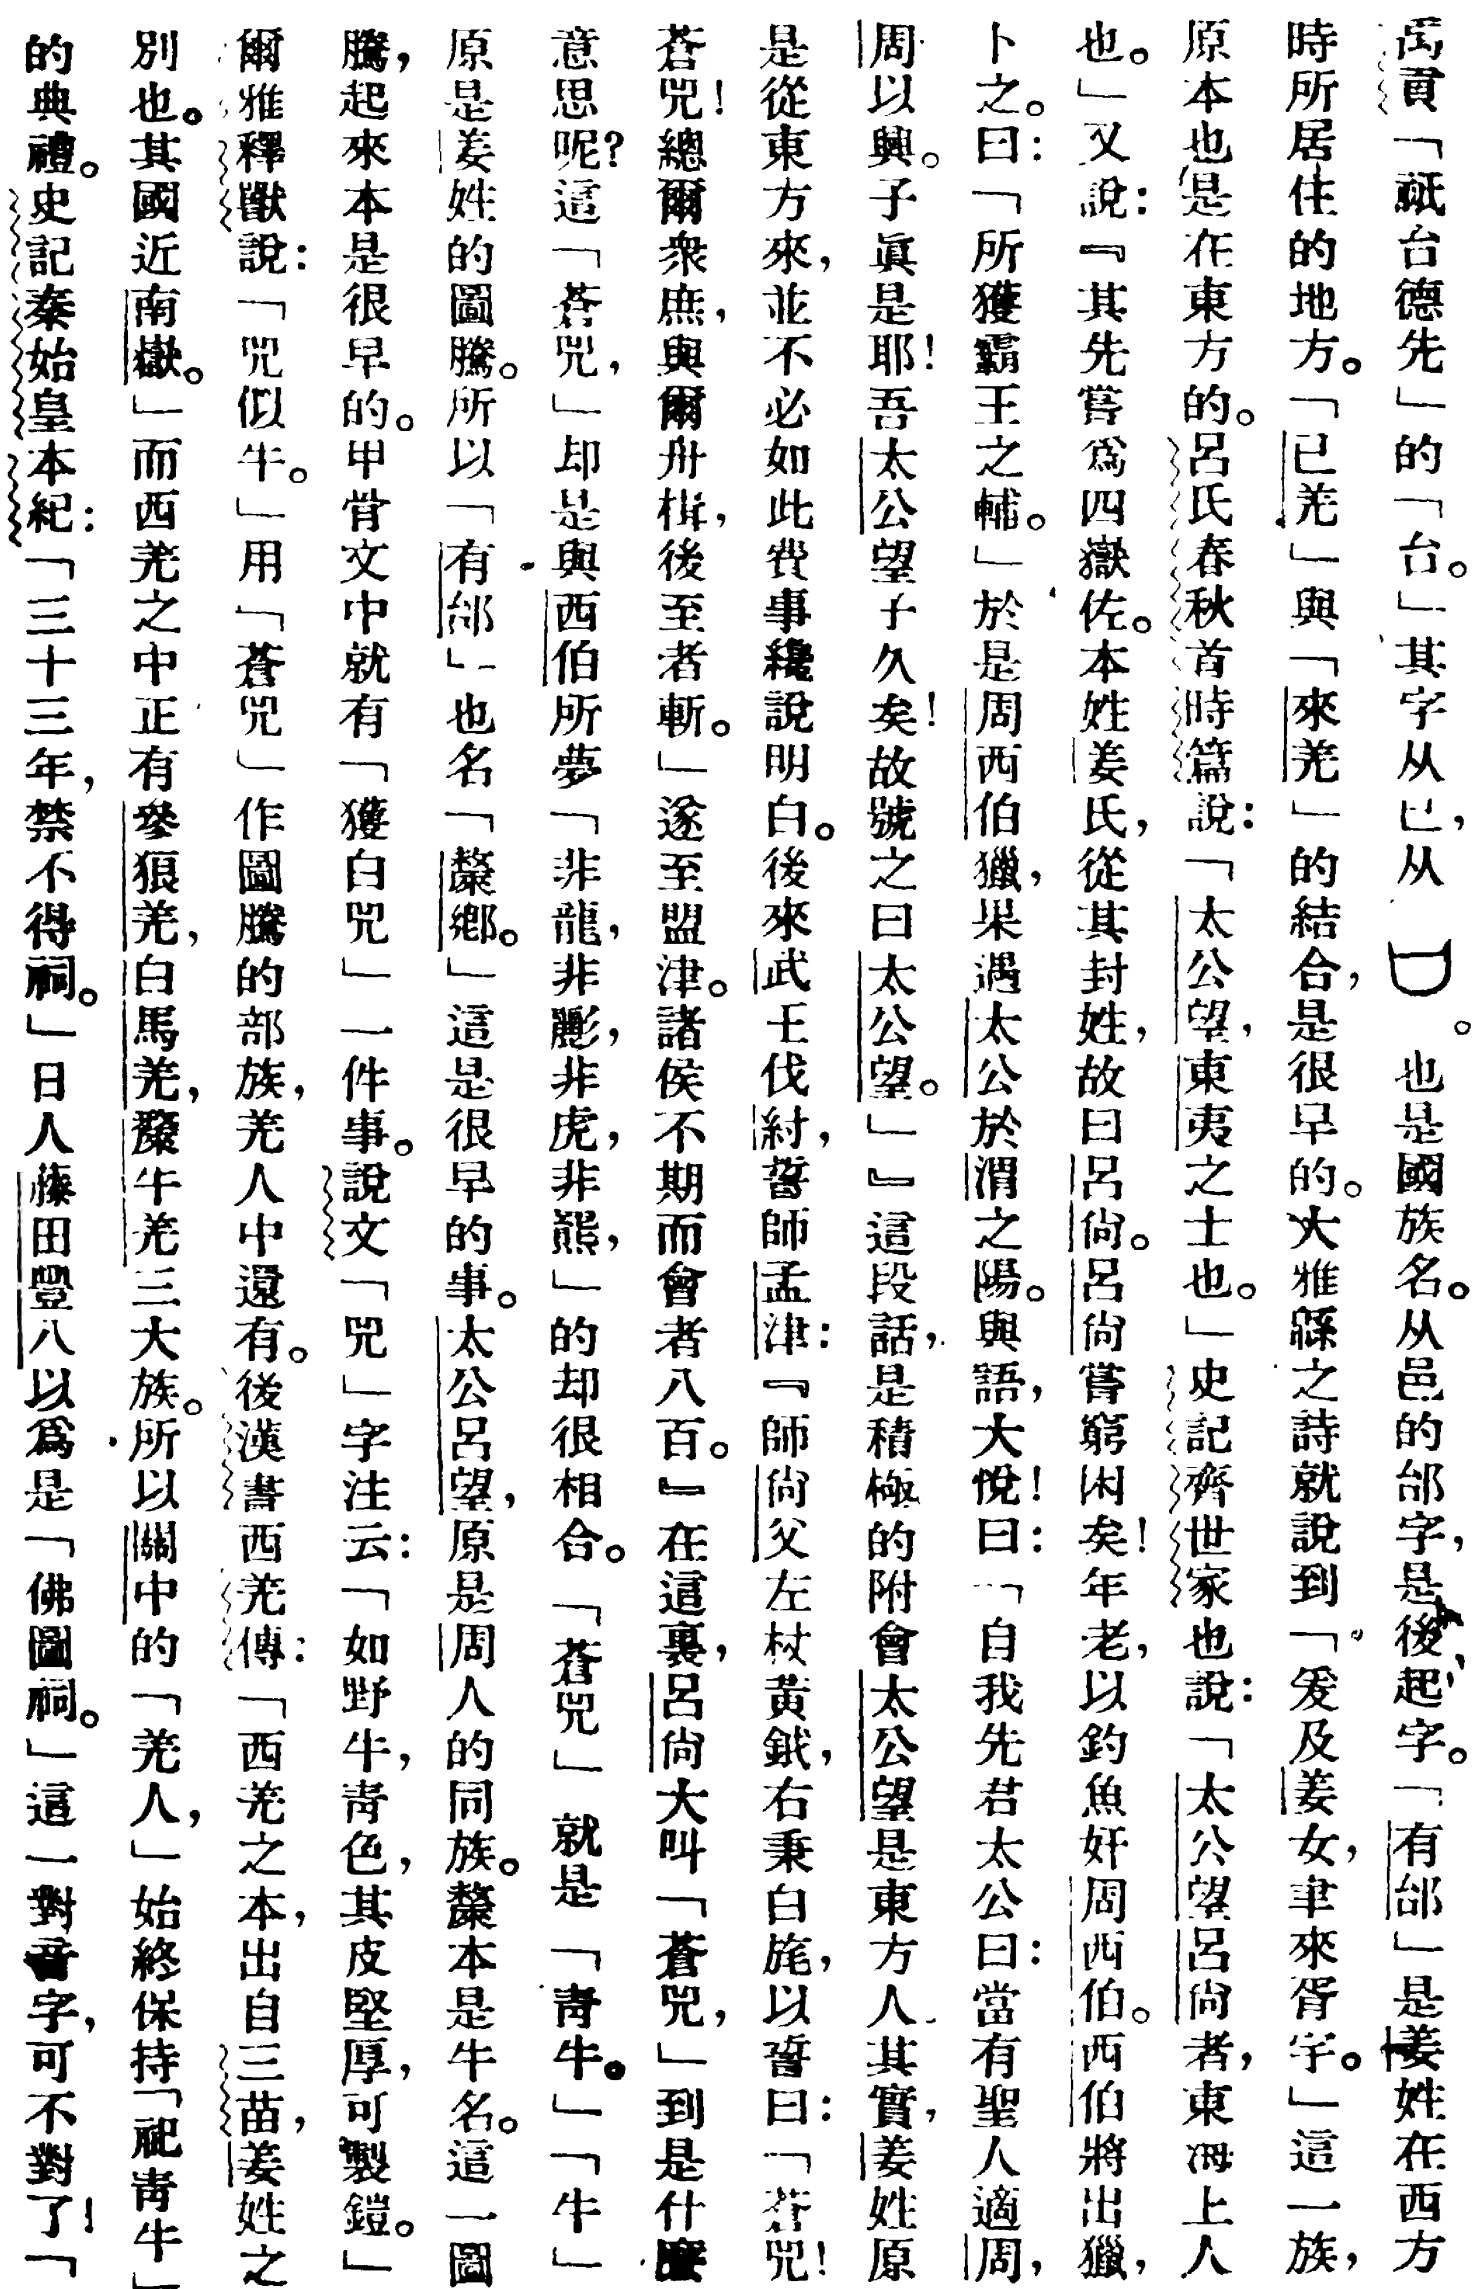 禹貢「祇台德先」的「台。」其字从㠯，从 ㅂ。也是國族名。从邑的邰字，是後起字。「有邰」是姜姓在西方
時所居住的地方。「已羌」與「來羌」的結合，是很早的。大雅緜之詩就說到「爰及姜女，聿來胥宇。」這一族，
原本也是在東方的。呂氏春秋首時篇說：「太公望，東夷之士也。」史記齊世家也說：「太公望呂尙者，東海上人
也。」又說：『其先嘗爲四嶽佐。本姓姜氏，從其封姓，故曰呂尙。呂尙嘗窮困矣！年老，以釣魚奸周西伯。西伯將出獵，
卜之。曰：「所獲霸王之輔。」於是周西伯獵，果遇太公於渭之陽。與語，大悅！曰：「自我先君太公曰：當有聖人適周，
周以興。子眞是耶！吾太公望子久矣！故號之曰太公望。」』這段話，是積極的附會太公望是東方人其實，姜姓原
是從東方來，並不必如此費事纔說明白。後來武王伐紂，誓師孟津：『師尙父左杖黃鉞，右秉白旄，以誓曰：「蒼兕！
蒼兕！總爾衆庶，與爾舟楫，後至者斬。」遂至盟津。諸侯不期而會者八百。』在這裏，呂尙大叫「蒼兕，」到是什麼
意思呢？這「蒼兕，」却是與西伯所夢「非龍，非彲，非虎，非熊，」的却很相合。「蒼兕」就是「靑牛。」「牛」
原是姜姓的圖騰。所以「有邰」也名「斄鄕。」這是很早的事。太公呂望，原是周人的同族。斄本是牛名。這一圖
騰，起來本是很早的。甲骨文中就有「獲白兕」一件事。說文「兕」字注云：「如野牛，靑色，其皮堅厚，可製鎧。」
爾雅釋獸說：「兕似牛。」用「蒼兕」作圖騰的部族，羌人中還有。後漢書西羌傳：「西羌之本，出自三苗，姜姓之
別也。其國近南嶽。」而西羌之中正有參狼羌，白馬羌，犛牛羌三大族。所以關中的「羌人，」始終保持「祀靑牛」
的典禮。史記秦始皇本紀：「三十三年，禁不得祠。」日人藤田豐八以爲是「佛圖祠。」這一對音字，可不對了！「